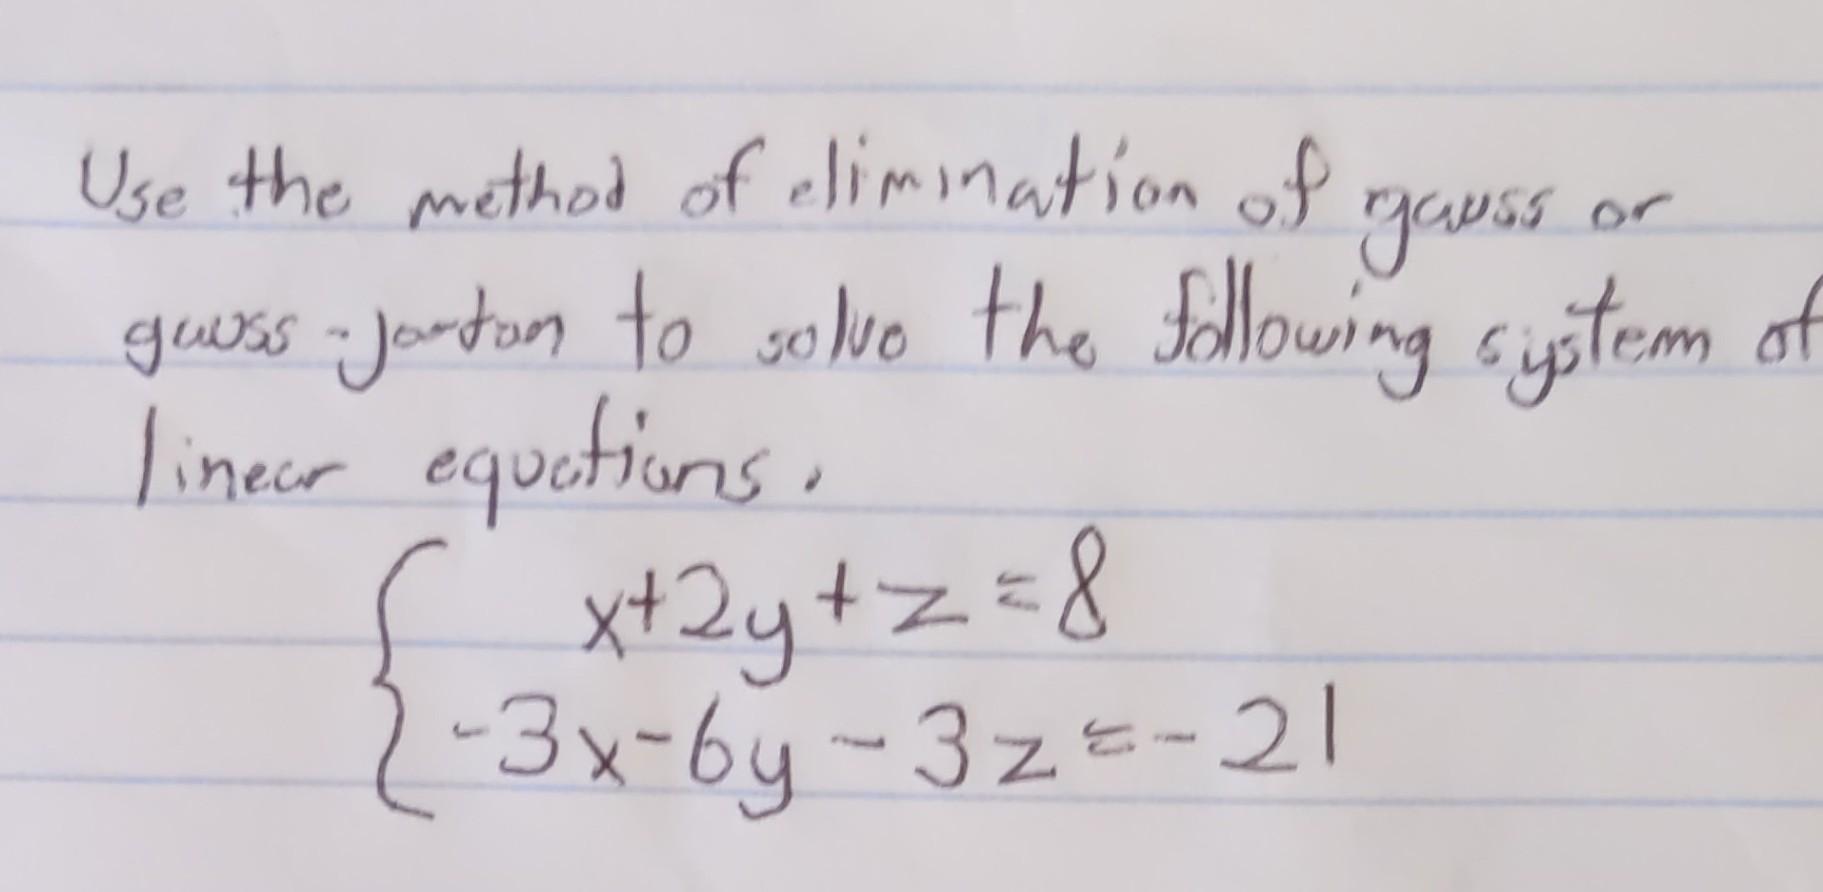 Use the method of elimination of gauss or
gauss-jordan to solve the following system of
linear equations.
x+2y+z=8
-3x-6y-3z=-21